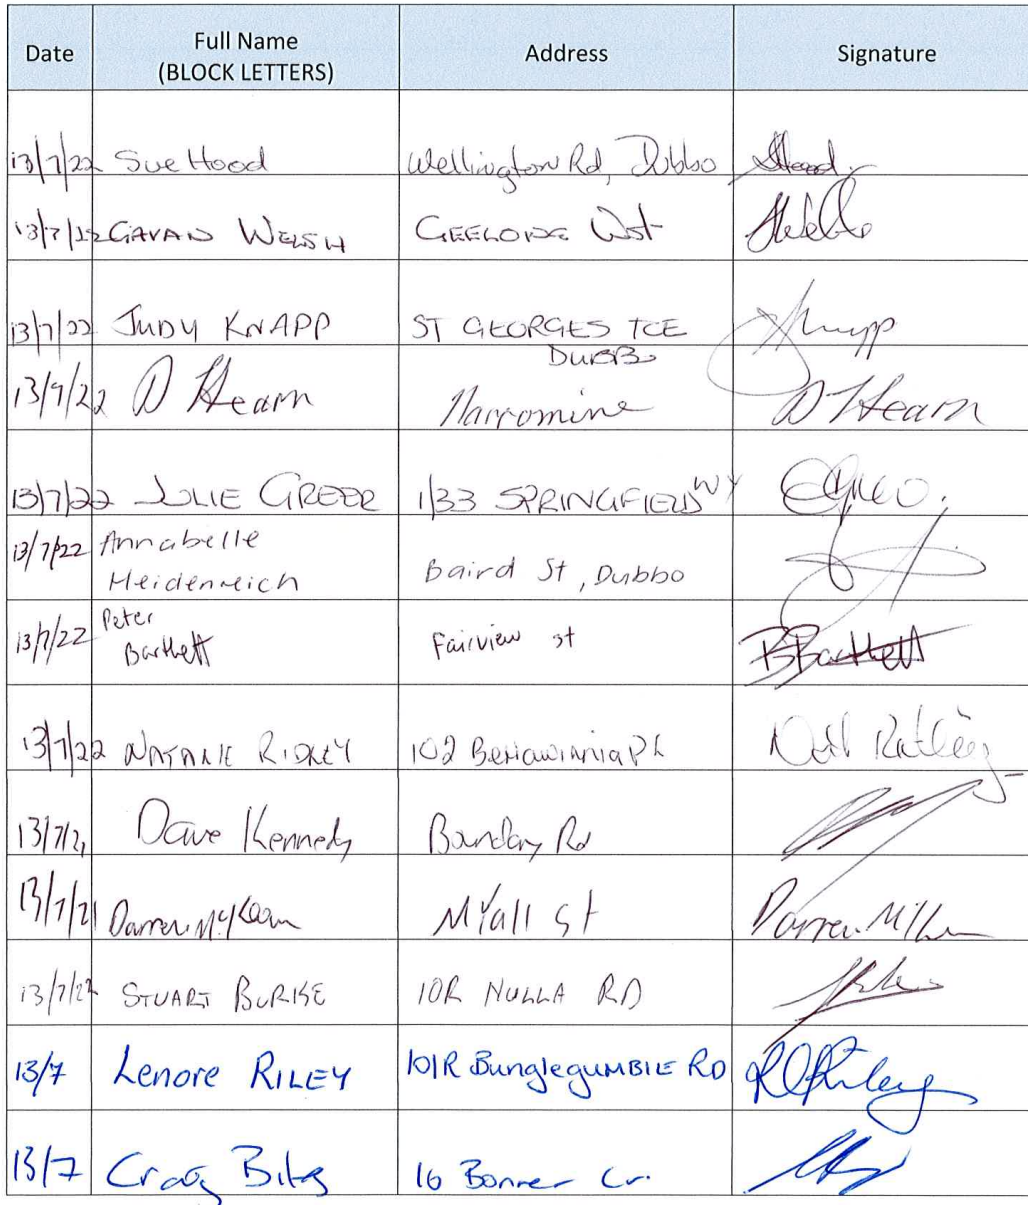 Date Full Name Address Signature
(BLOCK LETTERS)
13/7/22 Sue Hood Wellington Rd, Dubbo SHood
13/7/22 GAVAN WELSH GEELONG Wst
13/7/22 JUDY KNAPP ST GEORGES TCE JKnapp
DUBBO
13/9/22 D Hearn Narromine D Hearn
13/7/22 JULIE GREER 1/33 SPRINGFIELD WY
13/7/22 Annabelle
Heidenreich Baird St, Dubbo
13/7/22 Peter
Bartlett Fairview st PBartlett
13/7/22 NATALIE RIDLEY 102 Pl
13/7/21 Dave Kennedy Boundary Rd
13/7/21 Darren Myall St Darren
13/7/22 STUART BURKE 10R NULLA RD
13/7 Lenore RILEY 101R BunglegUMBIE RD Riley
13/7 Craig 16 Bonner Cr.